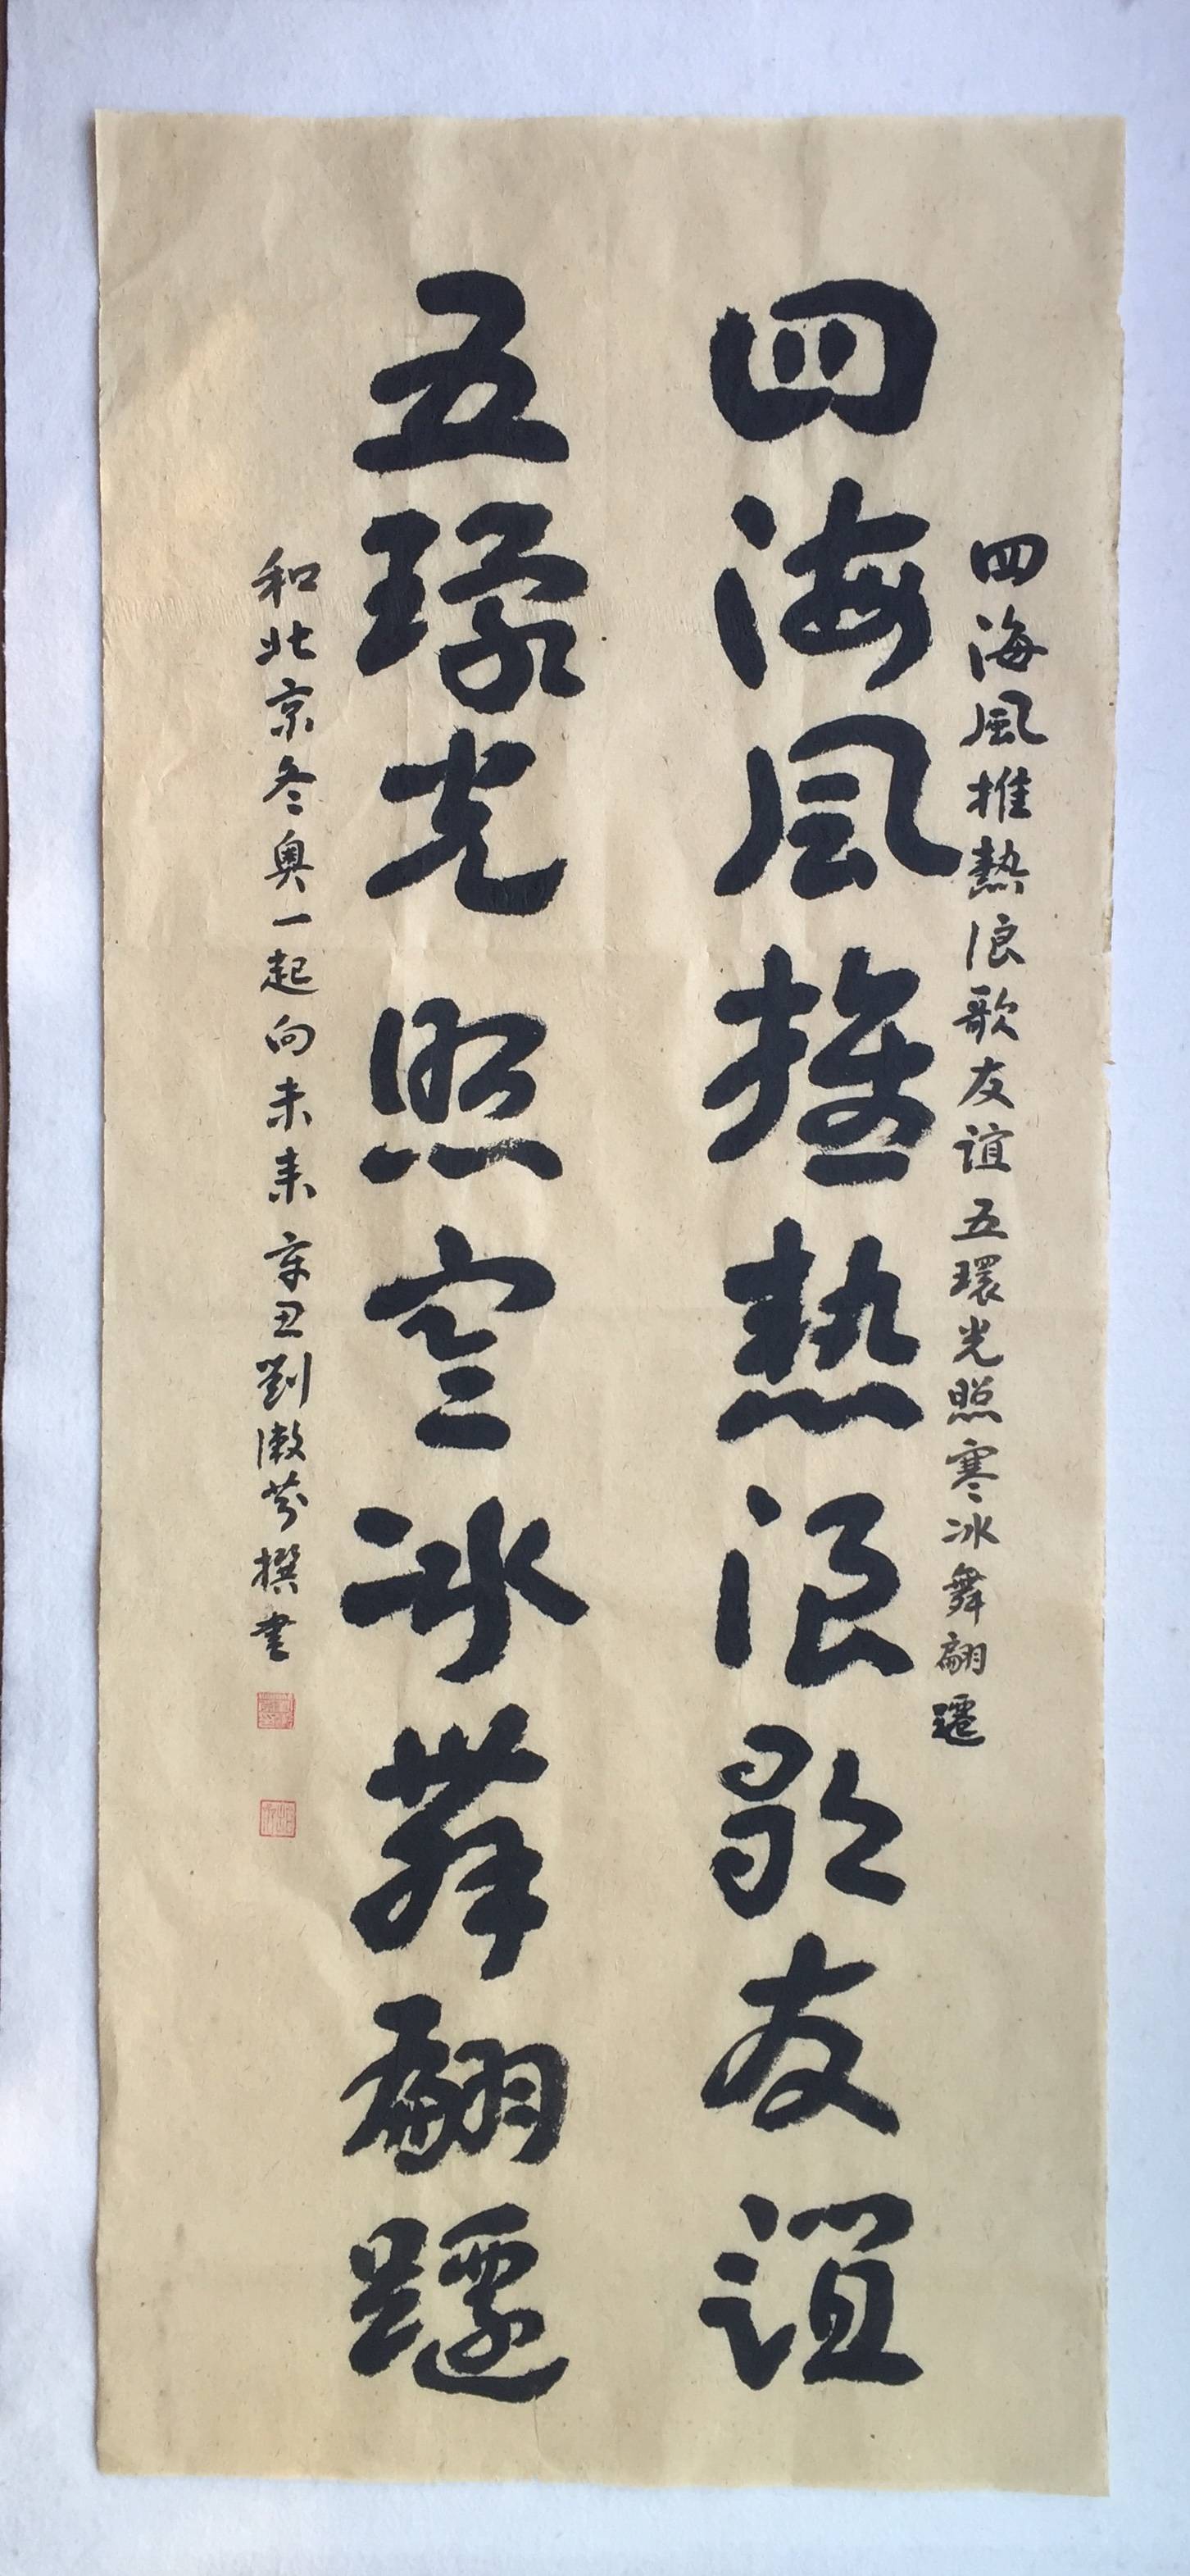 四海風推熱浪歌友誼五環光照寒冰舞翩躚
四海風推熱浪歌友誼
五環光照寒冰舞翩躚
和北京冬奥一起向未来辛丑劉漱芬撰書